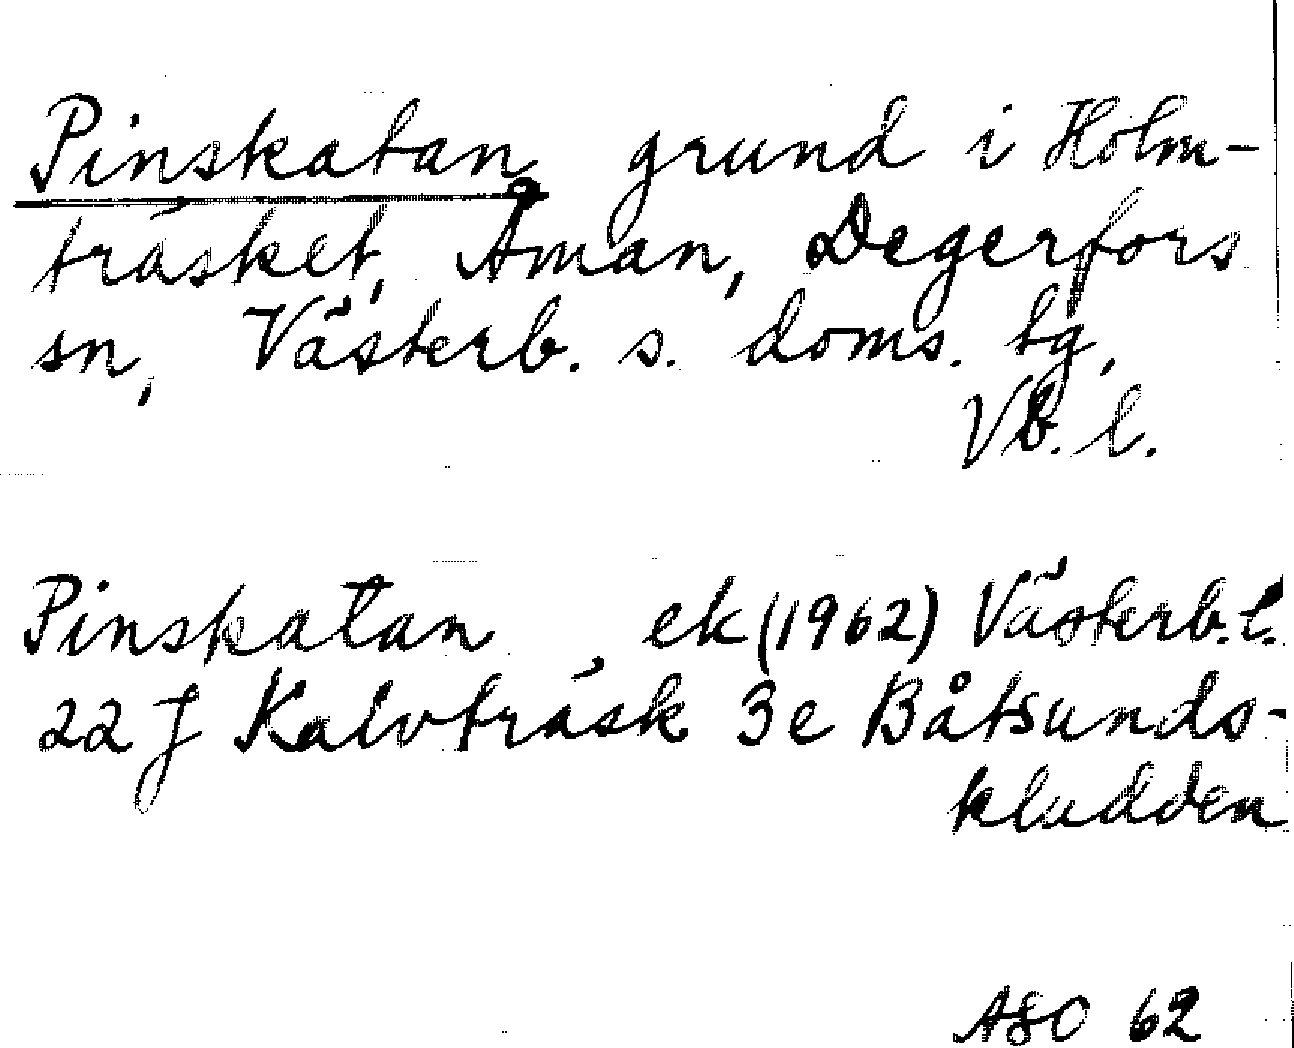 Pinskatan, grund i Holm-
träsket, Åman, Degerfors
sn, Västerb. s. doms. tg,
Vb. l.
Pinskatan, ek (1962) Västerb. l.
22 J Kalvträsk 3e Båtsunds-
kludden
ASO 62